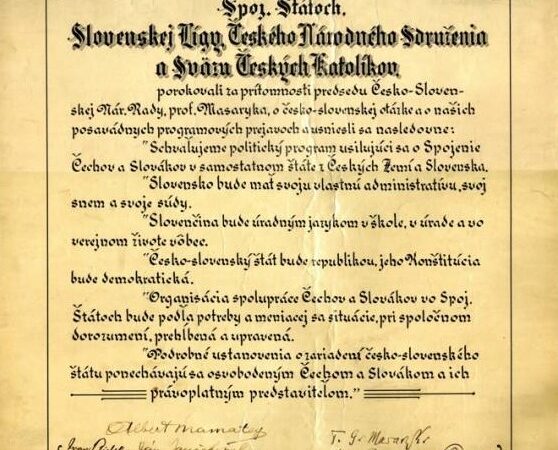 Spoj. Štátoch,
Slovenskej Ligy, Českého Národného Sdruženia
a Sväzu Českých Katolíkov,
porokovali za prítomnosti predsedu Česko-Sloven-
skej Nár. Rady, prof. Masaryka, o česko-slovenskej otázke a o našich
posavádnych programových prejavoch a usniesli sa nasledovne:
"Schvaľujeme politický program usilujúci sa o Spojenie
Čechov a Slovákov v samostatnom štáte z Českých Zemí a Slovenska.
"Slovensko bude mať svoju vlastnú administratívu, svoj
snem a svoje súdy.
"Slovenčina bude úradným jazykom v škole, v úrade a vo
verejnom živote vôbec.
"Česko-slovenský štát bude republikou, jeho Konštitúcia
bude demokratická.
"Organisácia spolupráce Čechov a Slovákov vo Spoj.
Štátoch bude podľa potreby a meniacej sa situácie, pri spoločnom
dorozumení, prehĺbená a upravená.
"Podrobné ustanovenia o zariadení česko-slovenského
štátu ponechávajú sa osvobodeným Čechom a Slovákom a ich
právoplatným predstaviteľom."
Albert Mamatey T. G. Masaryk